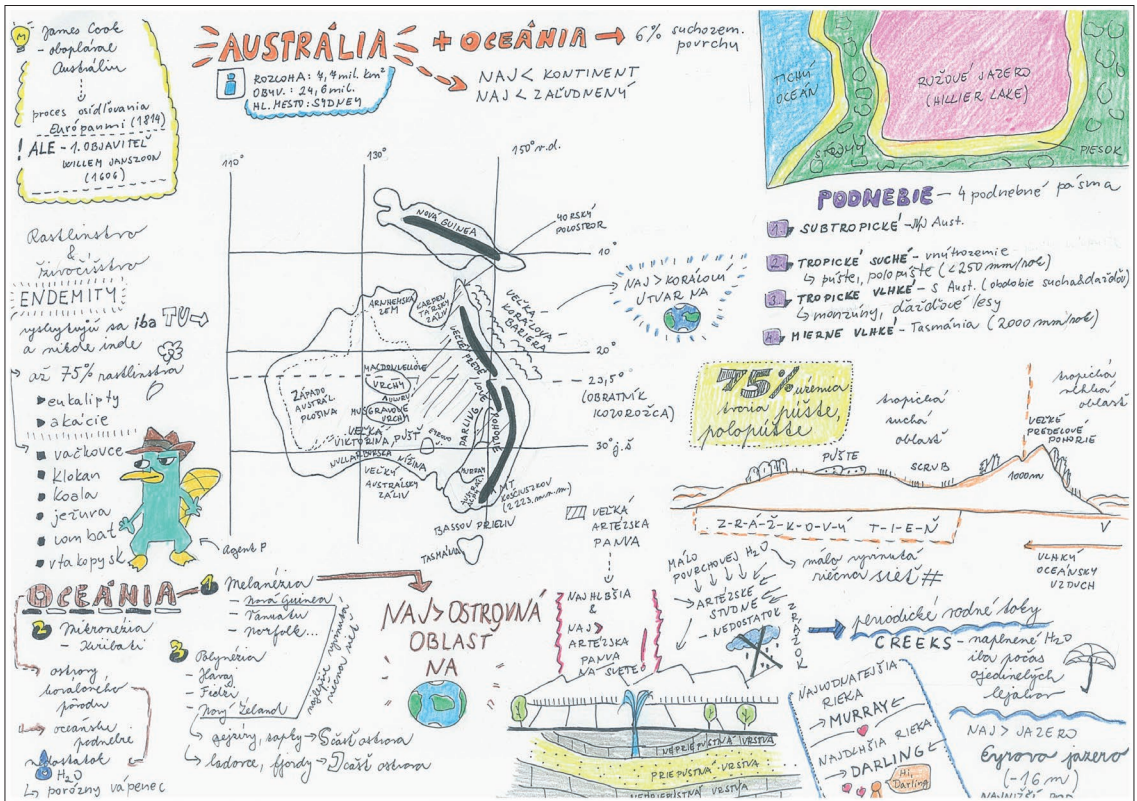 James Cook
- oboplával
Austráliu
proces osídľovania
Európanmi (1814)
! ALE - 1. OBJAVITEĽ
WILLEM JANSZOON
(1606)
AUSTRÁLIA + OCEÁNIA → 6% suchozem.
povrchu
ROZLOHA: 7,7 mil. km²
OBYV.: 24,6 mil.
HL. MESTO: SYDNEY
NAJ < KONTINENT
NAJ < ZAĽUDNENÝ
TICHÝ
OCEÁN
RUŽOVÉ JAZERO
(HILLIER LAKE)
STROMY
PIESOK
PODNEBIE - 4 podnebné pásma
1. SUBTROPICKÉ - JV Aust.
2. TROPICKÉ SUCHÉ - vnútrozemie
↳ púšte, polopúšte (<250 mm/rok)
3. TROPICKÉ VLHKÉ - S Aust. (obdobie sucha&dažďov)
↳ monzúny, dažďové lesy
4. MIERNE VLHKÉ - Tasmánia (2000 mm/rok)
Rastlinstvo
&
živočíšstvo
ENDEMITY
vyskytujú sa iba TU →
a nikde inde
až 75% rastlinstva
eukalipty
akácie
vačkovce
klokan
koala
ježura
vombat
vtakopysk
Agent P
110°
130°
150° v.d.
NOVÁ GUINEA
YORSKÝ
POLOSTROV
10°
ARNHEMSKÁ
ZEM
CARPEN
TARSKÝ
ZÁLIV
VEĽKÁ
KORALOVÁ
BARIÉRA
NAJ > KORÁLOVÝ
ÚTVAR NA
20°
VEĽKÉ PREDE
LOVÉ
POHORIE
MACDONNELLOVE
VRCHY
AULURU
MUSGRAVOVE
VRCHY
ZÁPADO
AUSTRÁL
PLOŠINA
23,5°
(OBRATNÍK
KOZOROŽCA)
VEĽKÁ
VIKTORIINA PÚŠŤ
EYROVO
DARLING
30° j.š
NULLARBORSKÁ NÍŽINA
VEĽKÝ
AUSTRÁLSKY
ZÁLIV
MURRAY
AUSTRÁL
ALPY
MT.
KOSCIUSZKOV
(2 223 m.n.m.)
BASSOV PRIELIV
TASMÁNIA
VEĽKÁ
ARTÉZSKA
PANVA
75% územia
tvoria púšte,
polopúšte
tropická
suchá
oblasť
tropická
vlhká
oblasť
VEĽKÉ
PREDELOVÉ
POHORIE
PÚŠTE
SCRUB
1000m
Z-R-Á-Ž-K-O-V-Ý T-I-E-Ň
V
VLHKÝ
OCEÁNSKY
VZDUCH
MÁLO
POVRCHOVEJ H₂O
málo vyvinutá
riečna sieť #
→ ARTÉZSKE
STUDNE
- NEDOSTATOK
ZRÁŽOK
OCEÁNIA
1 Melanézia
- Nová Guinea
- Vanuatu
- Norfolk...
2 Mikronézia
- Kiribati
3 Polynézia
- Havaj
- Fidži
- Nový Zéland
najlepšie vyvinutá
riečna sieť
→ ostrovy
koralového
pôvodu
→ oceánske
podnebie
nedostatok
H₂O
↳ porózny vápenec
↳ gejzíry, sopky → S časť ostrova
↳ ľadovce, fjordy → J časť ostrova
NAJ > OSTROVNÁ
OBLASŤ
NA
NAJHLBŠIA
&
NAJ >
ARTÉZSKA
PANVA
NA SVETE!
NEPRIEPUSTNÁ VRSTVA
PRIEPUSTNÁ VRSTVA
NEPRIEPUSTNÁ VRSTVA
periodické vodné toky
CREEKS - naplnené H₂O
iba počas
ojedinelých
lejakov
NAJVODNATEJŠIA
RIEKA
→ MURRAY
NAJDLHŠIA RIEKA
→ DARLING
Hi,
Darling
NAJ > JAZERO
Eyrovo jazero
(-16 m)